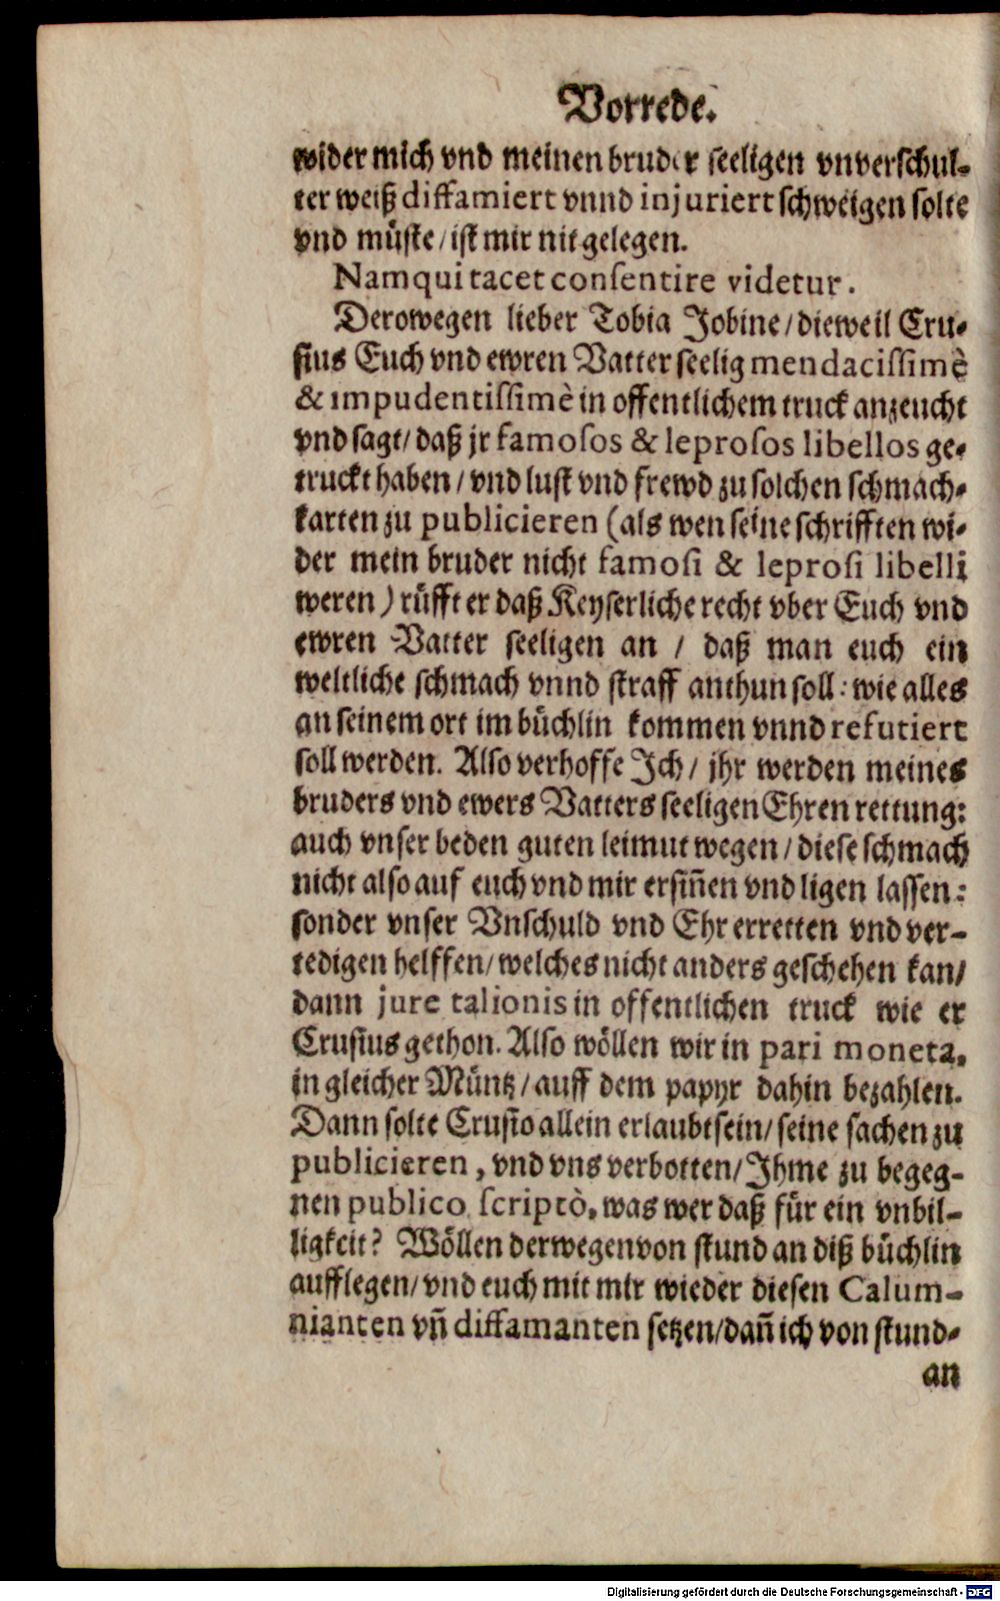 Vorrede.
wider mich vnd meinen bruder seeligen vnverschul-
ter weiß diffamiert vnnd injuriert schweigen solte
vnd müste / ist mir nit gelegen.
Nam qui tacet consentire videtur.
Derowegen lieber Tobia Jobine / dieweil Cru-
sius Euch vnd ewren Vatter seelig mendacissimè
& impudentissimè in offentlichem truck anzeucht
vnd sagt / daß jr famosos & leprosos libellos ge-
truckt haben / vnd lust vnd frewd zu solchen schmach-
karten zu publicieren (als wen seine schrifften wi-
der mein bruder nicht famosi & leprosi libelli
weren) rüfft er daß Keyserliche recht vber Euch vnd
ewren Vatter seeligen an / daß man euch ein
weltliche schmach vnnd straff anthun soll: wie alles
an seinem ort im büchlin kommen vnnd refutiert
soll werden. Also verhoffe Ich / jhr werden meines
bruders vnd ewers Vatters seeligen Ehren rettung:
auch vnser beden guten leimut wegen / diese schmach
nicht also auf euch vnd mir ersiñen vnd ligen lassen:
sonder vnser Vnschuld vnd Ehr erretten vnd ver-
tedigen helffen / welches nicht anders geschehen kan /
dann jure talionis in offentlichen truck wie er
Crusius gethon. Also wöllen wir in pari moneta,
in gleicher Müntz / auff dem papyr dahin bezahlen.
Dann solte Crusio allein erlaubt sein / seine sachen zu
publicieren, vnd vns verbotten / Ihme zu begeg-
nen publico scriptò, was wer daß für ein vnbil-
ligkeit? Wöllen derwegen von stund an diß büchlin
aufflegen / vnd euch mit mir wieder diesen Calum-
nianten vñ diffamanten setzen / dañ ich von stund-
an
Digitalisierung gefördert durch die Deutsche Forschungsgemeinschaft - DFG